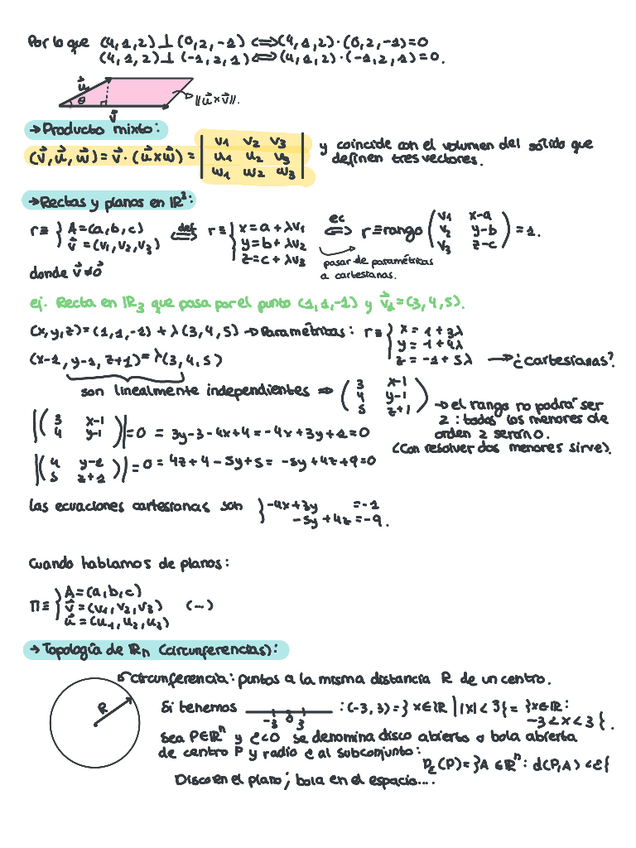 Por lo que (4,1,2) ⊥ (0,2,-1) ⟺ (4,1,2)·(0,2,-1)=0
(4,1,2) ⊥ (-1,2,1) ⟺ (4,1,2)·(-1,2,1)=0.
u⃗ θ v⃗ ‖u⃗×v⃗‖.
→Producto mixto:
(v⃗,u⃗,w⃗)=v⃗·(u⃗×w⃗)= | v1 v2 v3 | y coincide con el volumen del sólido que
| u1 u2 v3 | definen tres vectores.
| w1 w2 w3 |
→Rectas y planos en ℝ³:
r≡ { A=(a,b,c) def ⟺ r≡ { x=a+λv1 ec ⟺ r≡rango ( v1 x-a ) =1.
v⃗=(v1,v2,v3) y=b+λv2 ( v2 y-b )
z=c+λv3 ( v3 z-c )
donde v⃗≠0⃗
pasar de paramétricas
a cartesianas.
ej. Recta en ℝ3 que pasa por el punto (1,1,-1) y v⃗1=(3,4,5).
(x,y,z)=(1,1,-1)+λ(3,4,5) →Paramétricas: r≡ { x=1+3λ
y=-1+4λ
z=-1+5λ →¿cartesianas?
(x-1,y-1,z+1)=λ(3,4,5)
son linealmente independientes ⇒ ( 3 x-1 )
( 4 y-1 )
( 5 z+1 )
→el rango no podrá ser
2: todos los menores de
orden 2 serán 0.
(Con resolver dos menores sirve).
|( 3 x-1 )|
|( 4 y-1 )| =0 = 3y-3-4x+4=-4x+3y+1=0
|( 4 y-1 )|
|( 5 z+1 )| =0=4z+4-5y+5=-5y+4z+9=0
las ecuaciones cartesianas son { -4x+3y =-1
-5y+4z=-9.
Cuando hablamos de planos:
Π≡ { A=(a,b,c)
v⃗=(v1,v2,v3) (...)
u⃗=(u1,u2,u3)
→Topología de ℝn (circunferencias):
Circunferencia: puntos a la misma distancia R de un centro.
R
Si tenemos -3 0 3 :(-3,3)={x∈ℝ | |x|<3}={x∈ℝ:
-3<x<3}.
Sea P∈ℝⁿ y ε<0 se denomina disco abierto o bola abierta
de centro P y radio ε al subconjunto:
Dε(P)={A∈ℝⁿ: d(P,A)<ε}
Disco en el plano; bola en el espacio....